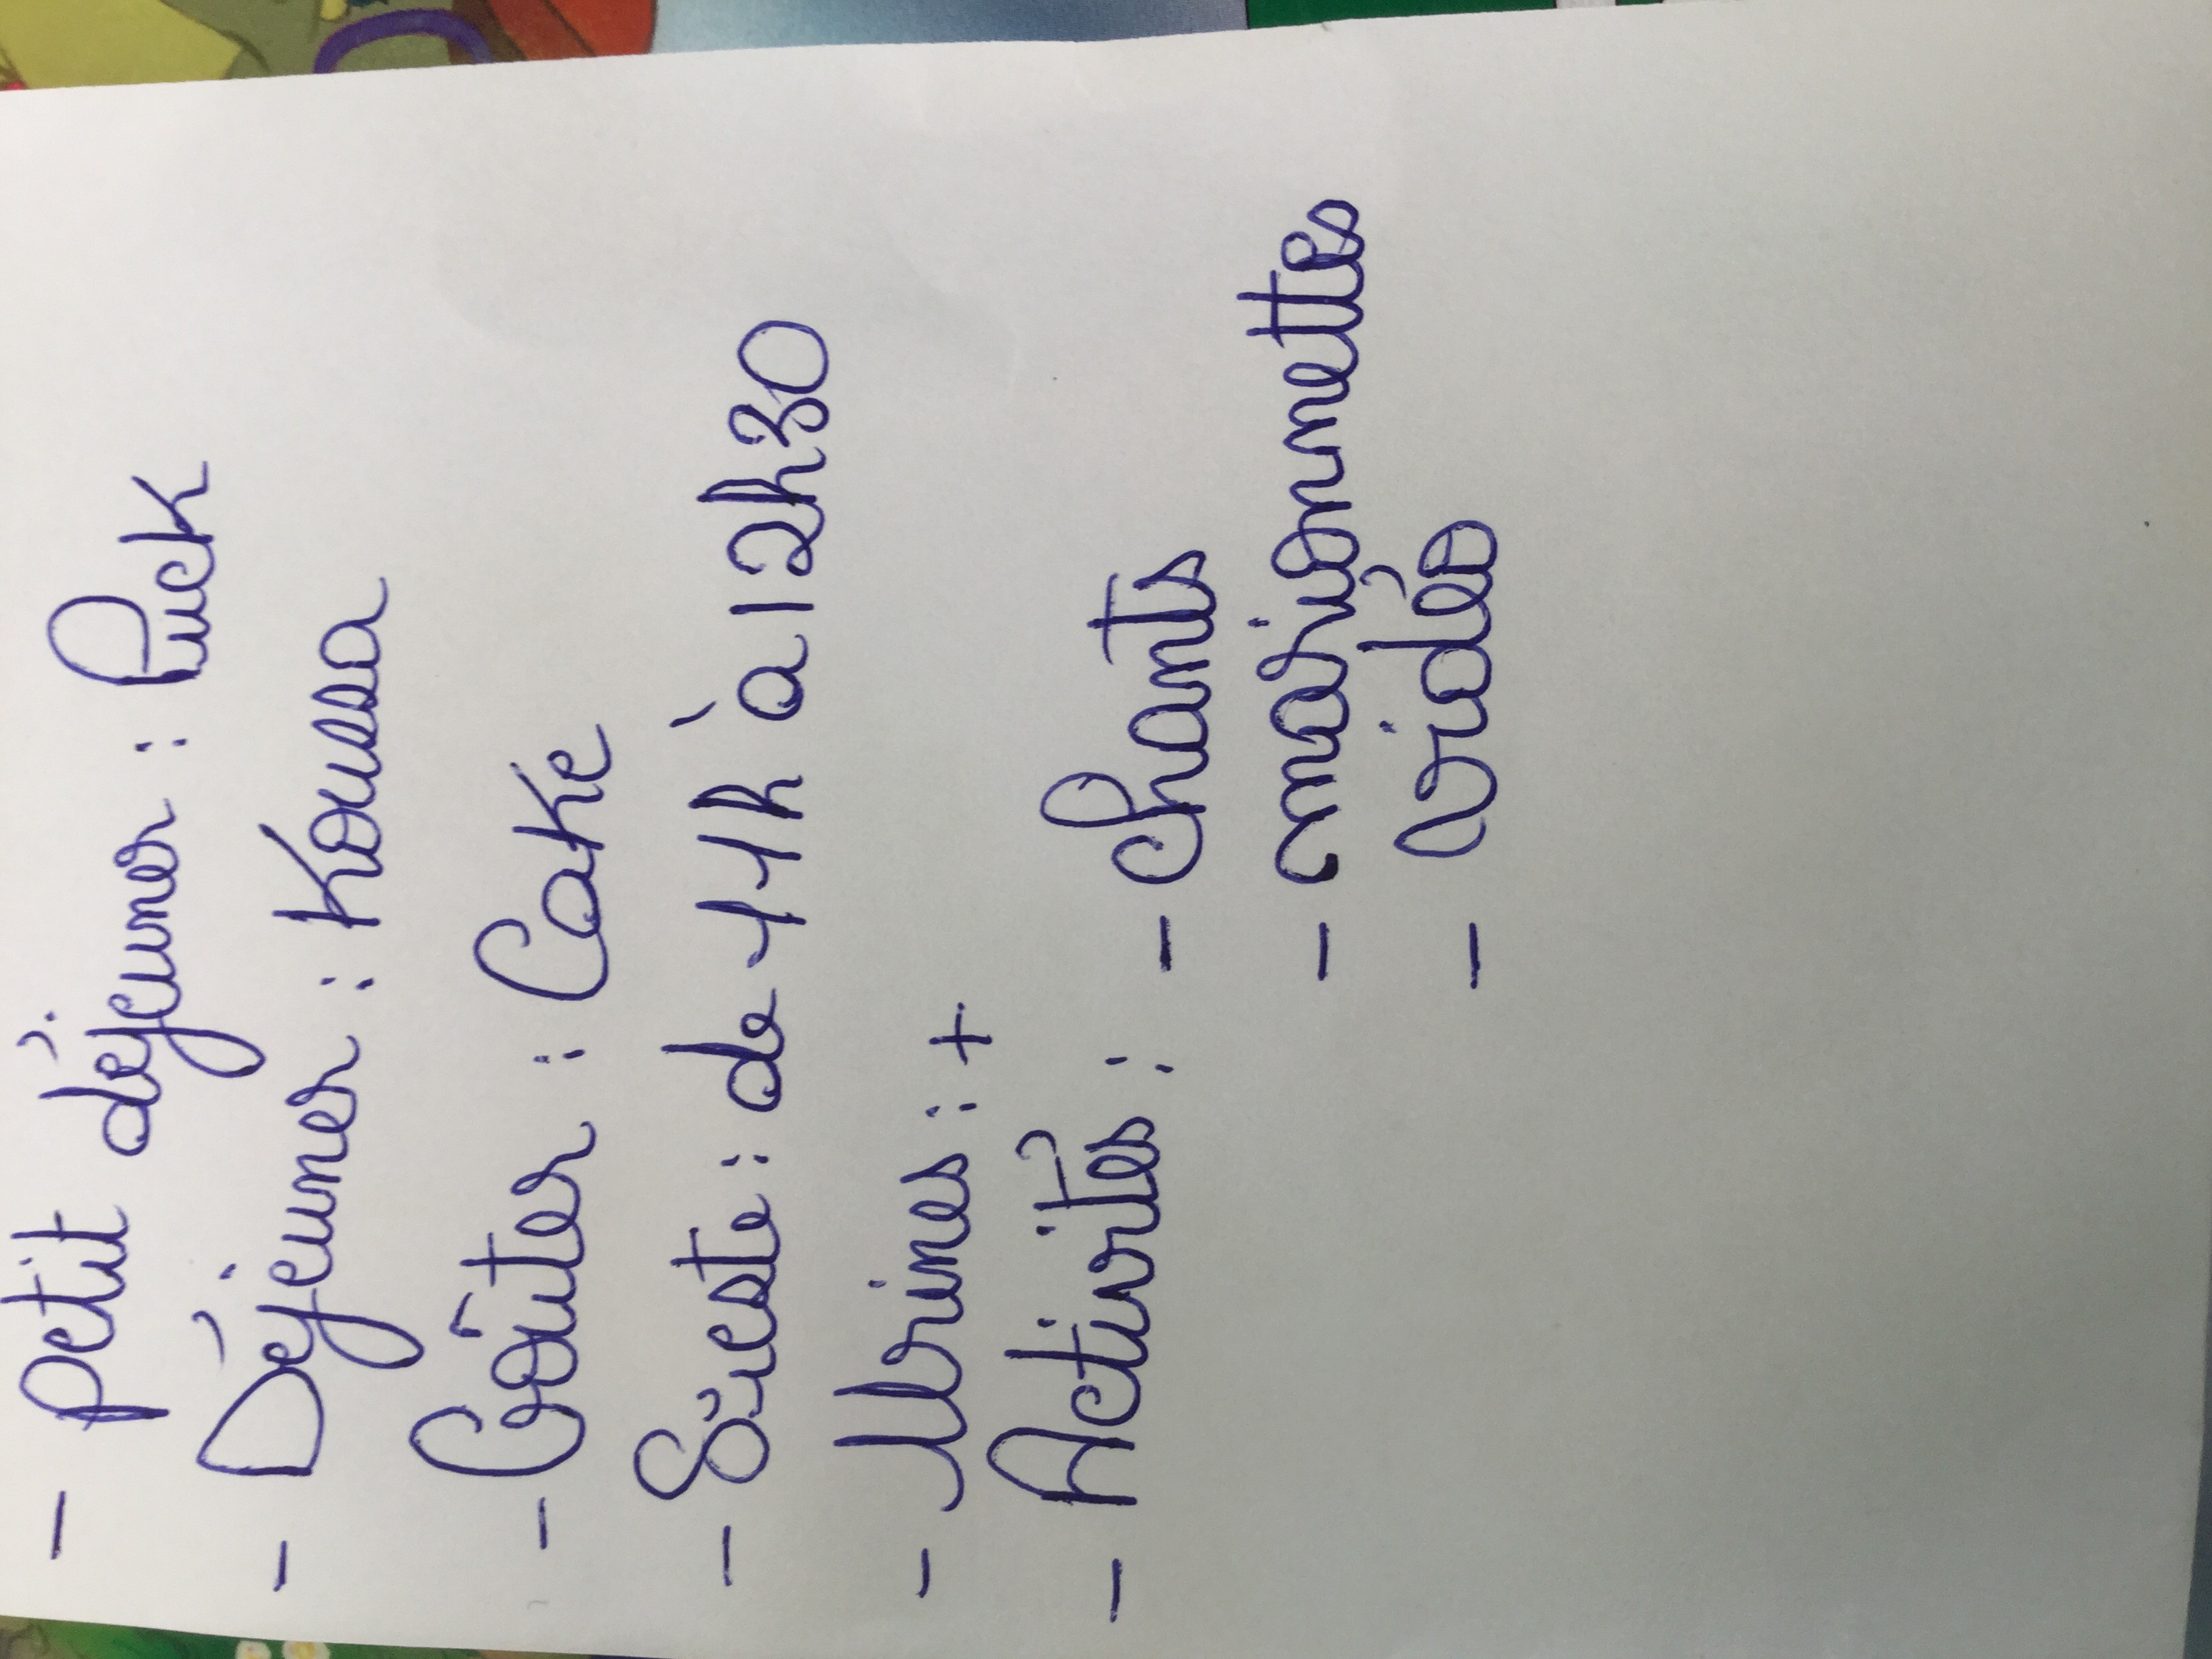 - petit déjeuner : Puck
- Déjeuner : Koussa
- Goûter : Cake
- Sieste : de 11h à 12h30
- Urines : +
- Activités : - chants
- marionnettes
- vidéo